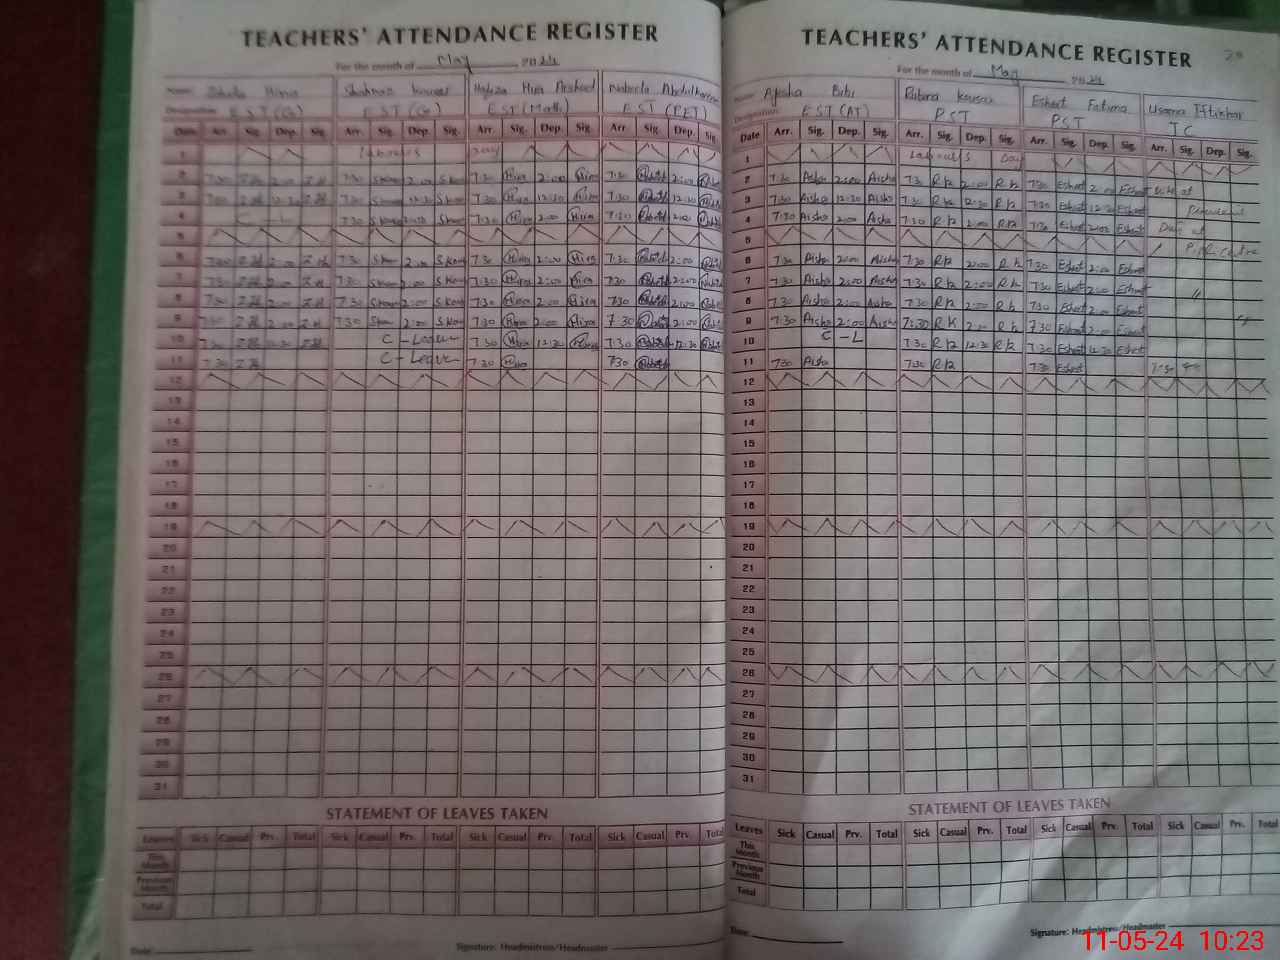 TEACHERS' ATTENDANCE REGISTER
For the month of May 2024
Name: Hina Shahnaz Kousar Hafiza Hira Rasheed Nabeela Abdulkareem
Designation: EST (G) EST (G) EST (Math) EST (PET)
Date Arr. Sig. Dep. Sig. Arr. Sig. Dep. Sig. Arr. Sig. Dep. Sig. Arr. Sig. Dep. Sig.
1 Labour's Day
2 7:00 2:00 7:30 2:00 7:30 Hira 2:00 Hira 7:30 2:00
3 7:00 12:30 7:30 12:30 7:30 Hira 12:30 Hira 7:30 12:30
4 C - L 7:30 2:00 7:30 Hira 2:00 Hira 7:30 2:00
5
6 7:00 2:00 7:30 2:00 7:30 Hira 2:00 Hira 7:30 2:00
7 7:30 2:00 7:30 2:00 7:30 Hira 2:00 Hira 7:30 2:00
8 7:30 2:00 7:30 2:00 7:30 Hira 2:00 Hira 7:30 2:00
9 7:30 2:00 7:30 2:00 7:30 Hira 2:00 Hira 7:30 2:00
10 7:30 12:30 C - Leave 7:30 Hira 12:30 Hira 7:30 12:30
11 7:30 C - Leave 7:30 Hira 7:30
12
13
14
15
16
17
18
19
20
21
22
23
24
25
26
27
28
29
30
31
STATEMENT OF LEAVES TAKEN
Leaves Sick Casual Prv. Total Sick Casual Prv. Total Sick Casual Prv. Total Sick Casual Prv. Total
This Month
Previous Month
Total
Date: Signature: Headmistress/Headmaster
TEACHERS' ATTENDANCE REGISTER
For the month of May 2024
Name: Aysha Bibi Rubina Kousar Eshrat Fatima Usama Iftikhar
Designation: EST (AT) PST PST IC
Date Arr. Sig. Dep. Sig. Arr. Sig. Dep. Sig. Arr. Sig. Dep. Sig. Arr. Sig. Dep. Sig.
1 Labour's Day
2 7:30 Aisha 2:00 Aisha 7:30 RK 2:00 RK 7:30 Eshrat 2:00 Eshrat
3 7:30 Aisha 12:30 Aisha 7:30 RK 12:30 RK 7:30 Eshrat 12:30 Eshrat
4 7:30 Aisha 2:00 Aisha 7:30 RK 2:00 RK 7:30 Eshrat 2:00 Eshrat
5
6 7:30 Aisha 2:00 Aisha 7:30 RK 2:00 RK 7:30 Eshrat 2:00 Eshrat
7 7:30 Aisha 2:00 Aisha 7:30 RK 2:00 RK 7:30 Eshrat 2:00 Eshrat
8 7:30 Aisha 2:00 Aisha 7:30 RK 2:00 RK 7:30 Eshrat 2:00 Eshrat
9 7:30 Aisha 2:00 Aisha 7:30 RK 2:00 RK 7:30 Eshrat 2:00 Eshrat
10 C - L 7:30 RK 12:30 RK 7:30 Eshrat 12:30 Eshrat
11 7:00 Aisha 7:30 RK 7:30 Eshrat 7:30
12
13
14
15
16
17
18
19
20
21
22
23
24
25
26
27
28
29
30
31
STATEMENT OF LEAVES TAKEN
Leaves Sick Casual Prv. Total Sick Casual Prv. Total Sick Casual Prv. Total Sick Casual Prv. Total
This Month
Previous Month
Total
Date: Signature: Headmistress/Headmaster
11-05-24 10:23